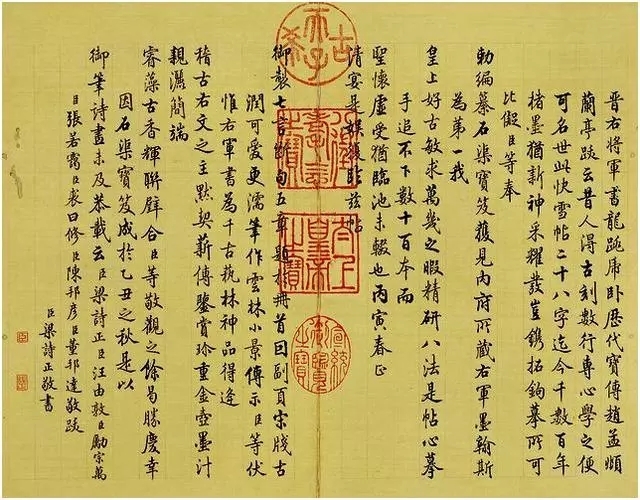 晉右將軍書龍跳虎臥歷代寶傳趙孟頫
蘭亭跋云昔人得古刻數行專心學之便
可名世此快雪帖二十八字迄今千數百年
楮墨猶新神采耀發豈鐫拓鉤摹所可
比儗臣等奉
勅編纂石渠寶笈獲見內府所藏右軍墨翰斯
為第一我
皇上好古敏求萬幾之暇精研八法是帖心摹
手追不下數十百本而
聖懷虛受猶臨池未輟也丙寅春正
清宴是娛復臨茲帖
御製七言斷句五章題於冊首因副頁宋牋古
潤可愛更濡筆作雲林小景傳示臣等伏
惟右軍書為千古執林神品得逢
稽古右文之主默契薪傳鑒賞珍重金壺墨汁
親灑簡端
睿藻古香輝聯璧合臣等敬觀之餘曷勝慶幸
因石渠寶笈成於乙丑之秋是以
御筆詩畫未及恭載云臣梁詩正臣汪由敦臣勵宗萬
臣張若靄臣裘曰修臣陳邦彥臣董邦達敬跋
臣梁詩正敬書
古希天子
八徵耄念之寶
太上皇帝之寶
宣統御覽之寶